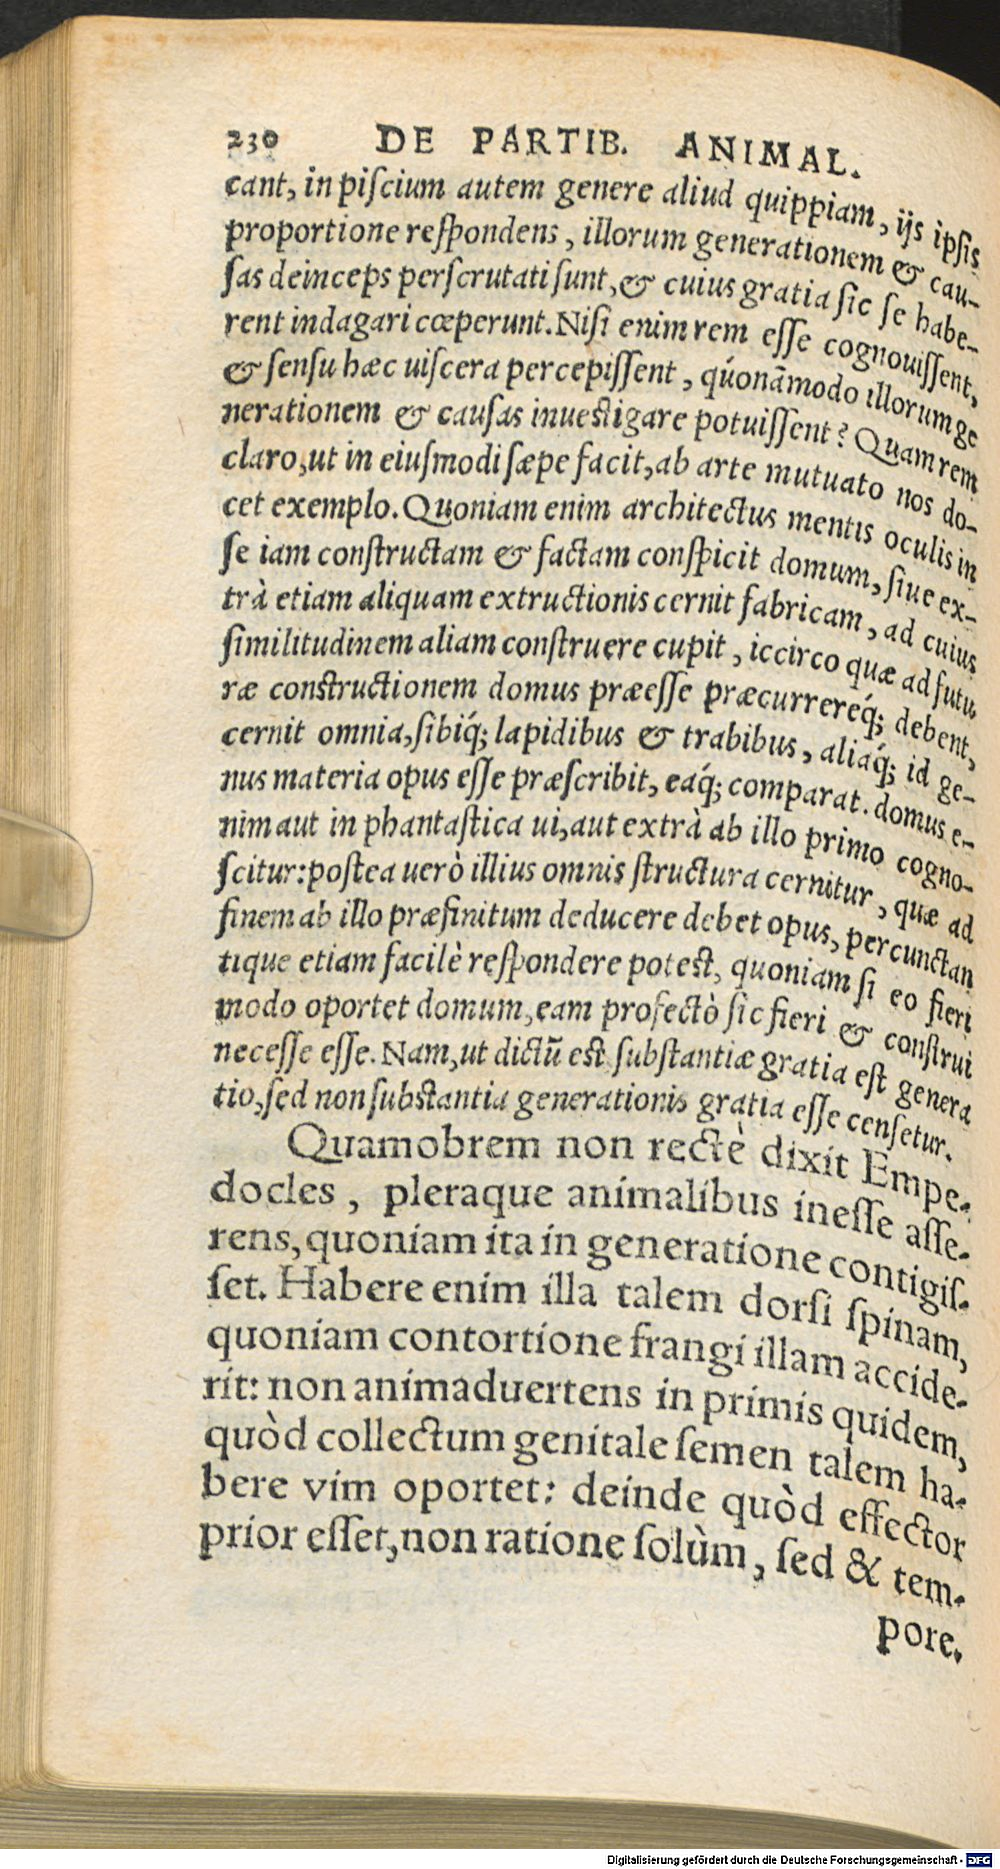 230 DE PARTIB. ANIMAL.
cant, in piſcium autem genere aliud quippiam, ijs ipſis
proportione reſpondens, illorum generationem & cau-
ſas deinceps perſcrutati ſunt, & cuius gratia ſic ſe habe-
rent indagari cœperunt. Niſi enim rem eſſe cognouiſſent,
& ſenſu hæc uiſcera percepiſſent, quónãmodo illorum ge
nerationem & cauſas inueſtigare potuiſſent? Quam rem
claro, ut in eiuſmodi ſæpe facit, ab arte mutuato nos do-
cet exemplo. Quoniam enim architectus mentis oculis in
ſe iam conſtructam & factam conſpicit domum, ſiue ex-
trà etiam aliquam extructionis cernit fabricam, ad cuius
ſimilitudinem aliam conſtruere cupit, iccirco quæ ad futu
ræ conſtructionem domus præeſſe præcurrereq́; debent,
cernit omnia, ſibiq́; lapidibus & trabibus, aliaq́; id ge-
nus materia opus eſſe præſcribit, eaq́; comparat. domus e-
nim aut in phantaſtica ui, aut extrà ab illo primo cogno-
ſcitur: poſtea uerò illius omnis ſtructura cernitur, quæ ad
finem ab illo præfinitum deducere debet opus, percunctan
tique etiam facilè reſpondere poteſt, quoniam ſi eo fieri
modo oportet domum, eam profectò ſic fieri & conſtrui
neceſſe eſſe. Nam, ut dictũ eſt ſubſtantiæ gratia eſt genera
tio, ſed non ſubſtantia generationis gratia eſſe cenſetur.
Quamobrem non rectè dixit Empe-
docles, pleraque animalibus ineſſe aſſe-
rens, quoniam ita in generatione contigiſ-
ſet. Habere enim illa talem dorſi ſpinam,
quoniam contortione frangi illam accide-
rit: non animaduertens in primis quidem,
quòd collectum genitale ſemen talem ha-
bere vim oportet: deinde quòd effector
prior eſſet, non ratione ſolùm, ſed & tem-
pore.
Digitalisierung gefördert durch die Deutsche Forschungsgemeinschaft - DFG